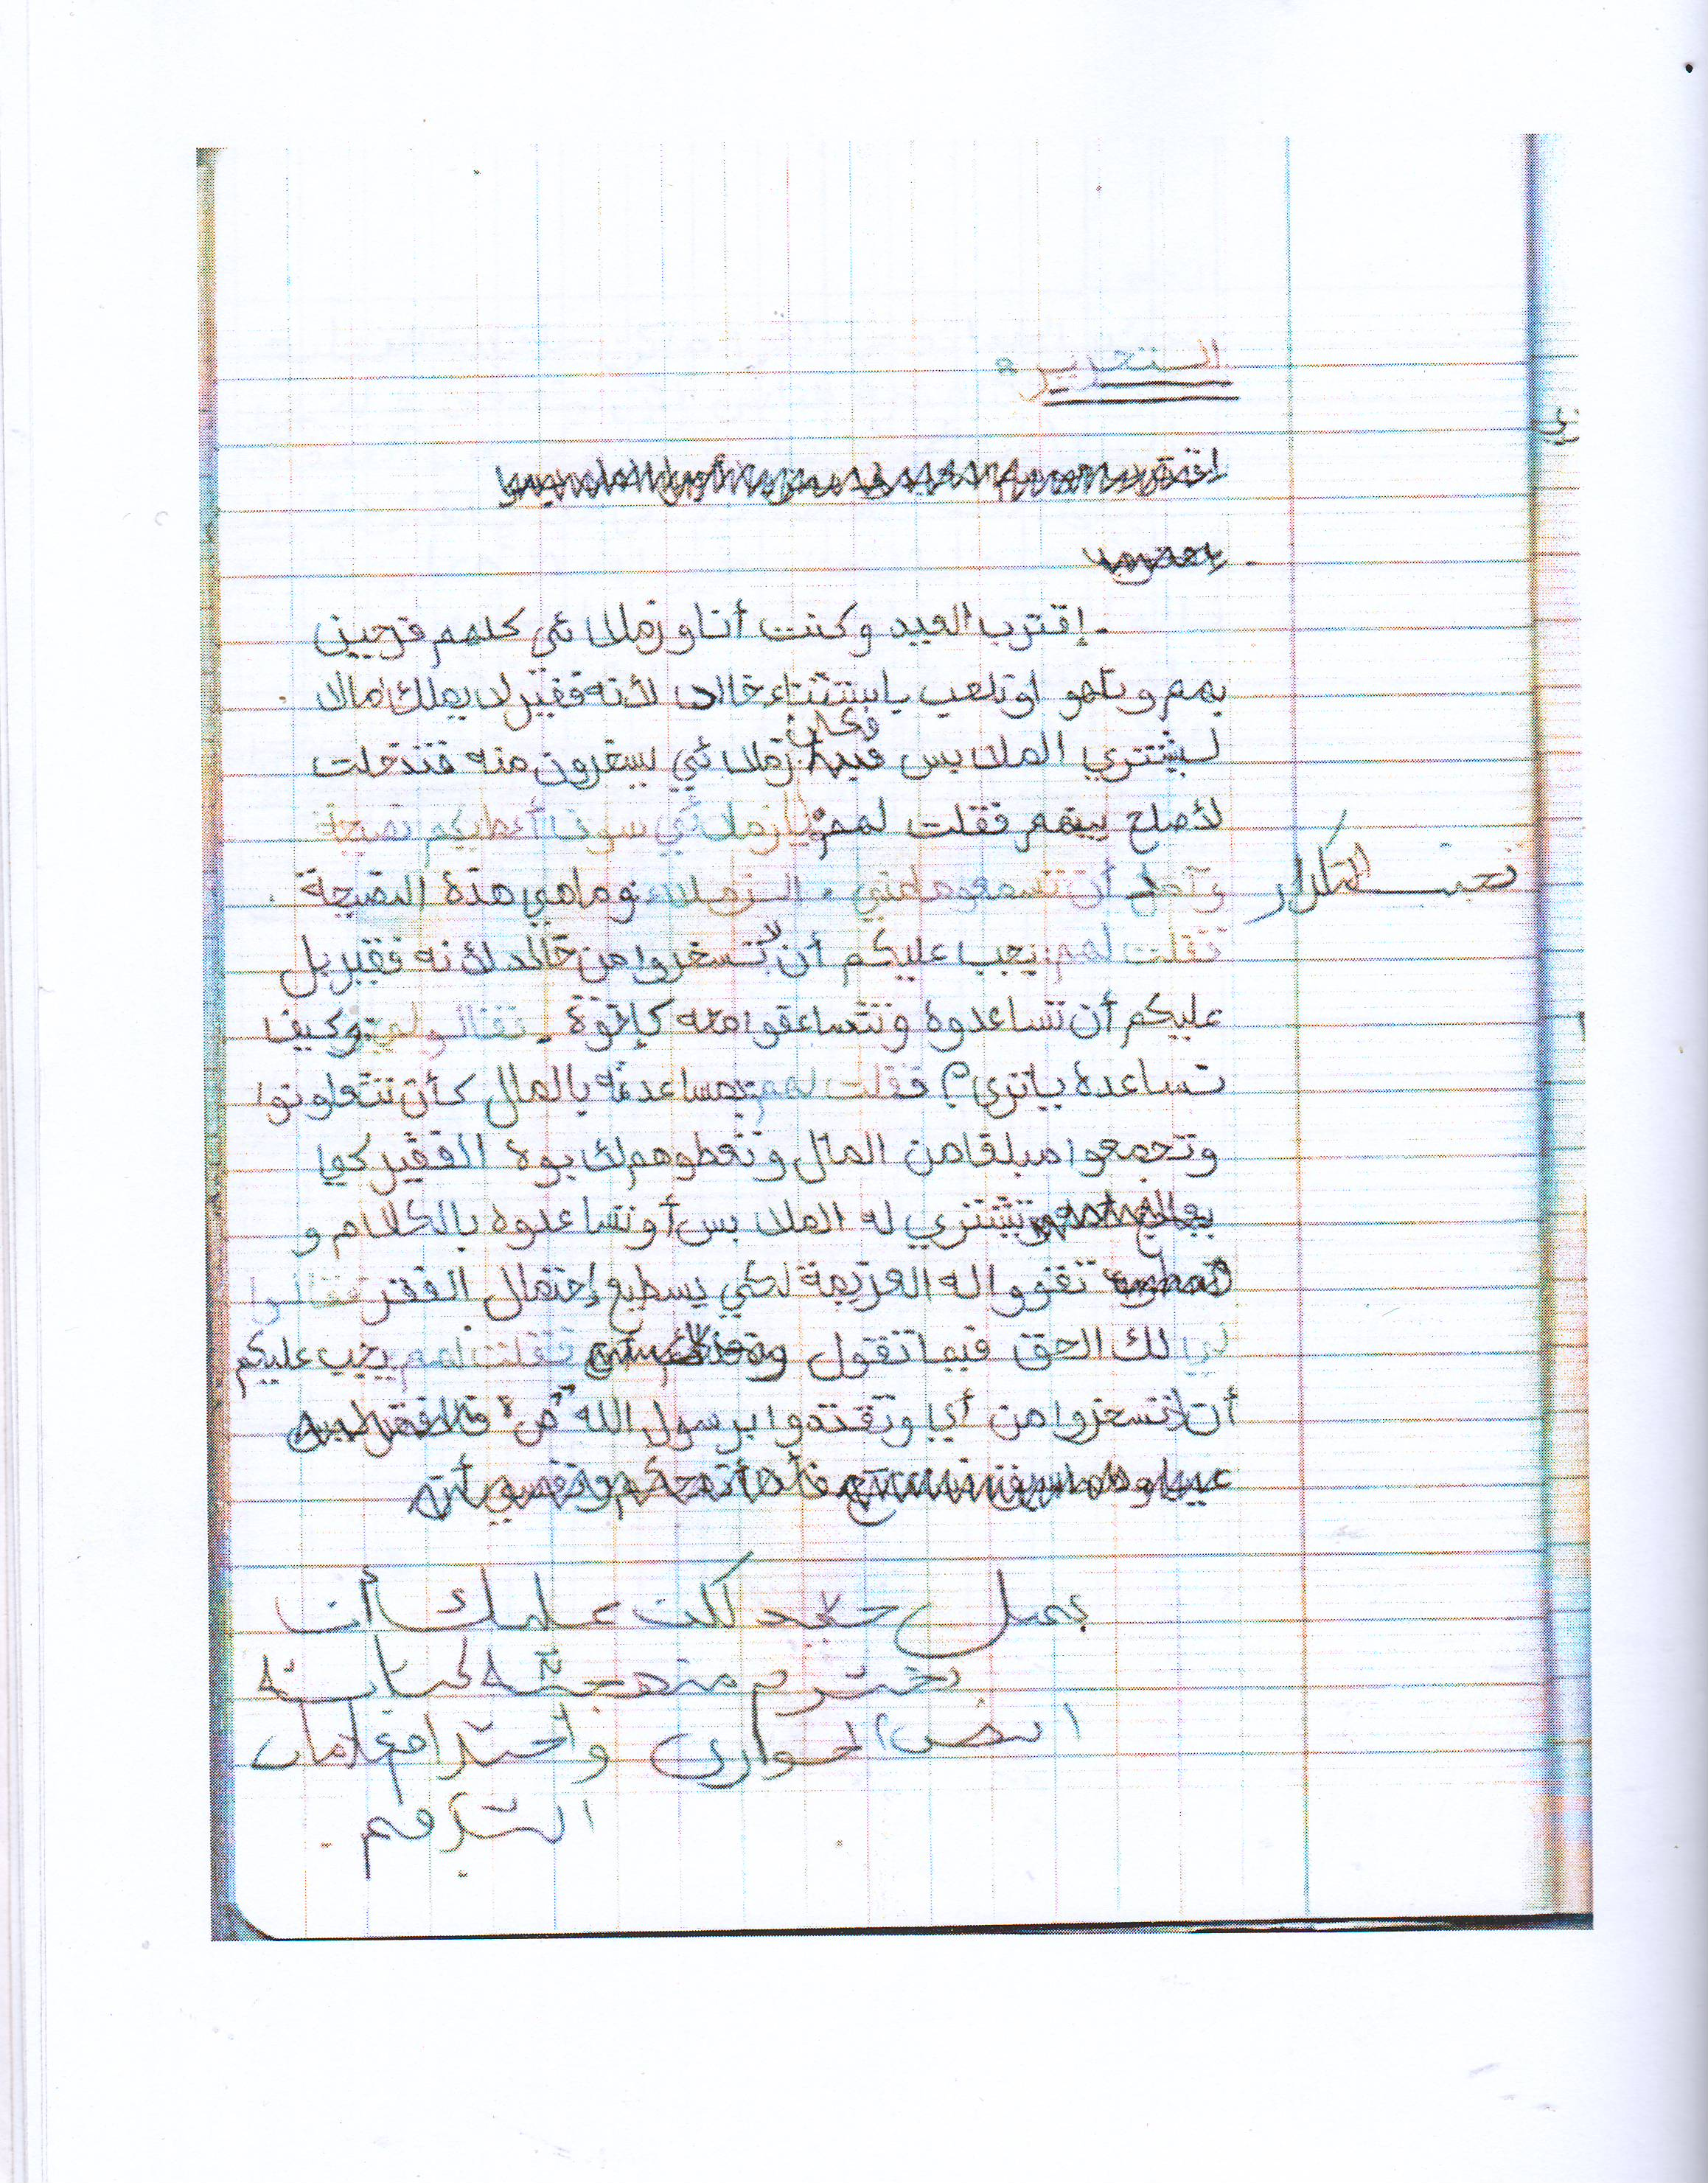 التحرير:
إقترب العيد وكنت أنا و زملائي كلهم فرحين
بهم ونلهو او نلعب باستثناء خالد لأنه فقير لا يملك مالا
ليشتري الملابس وكان زملائي يسخرون منه فتدخلت
لأصلح بينهم فقلت لهم: يا زملائي سوف أعطيكم نصيحة
وآمل أن تسمعوها مني. الزملاء: وما هي هذه النصيحة
تجنب التكرار
فقلت لهم: يجب عليكم أن لا تسخروا من خالد لأنه فقير بل
عليكم أن تساعدوه وتتساعفوا معه كإخوة. فقالوا لي: وكيف
نساعده يا ترى؟ فقلت لهم: بمساعدته بالمال كأن تتعاونوا
وتجمعوا مبلغا من المال وتعطوهم لأبوه الفقير كي
يشتري له الملابس أو تساعدوه بالكلام و
تقووا له العزيمة لكي يسطيع إحتمال الفقر فقالوا
لي لك الحق فيما تقول فقلت لهم يجب عليكم
أن لا تسخروا من أي وتقتدوا برسول الله "ص"
عمل جيد لكن عليك أن
تحترم منهجية كتابة
النص الحواري واحترام علامات
الترقيم.